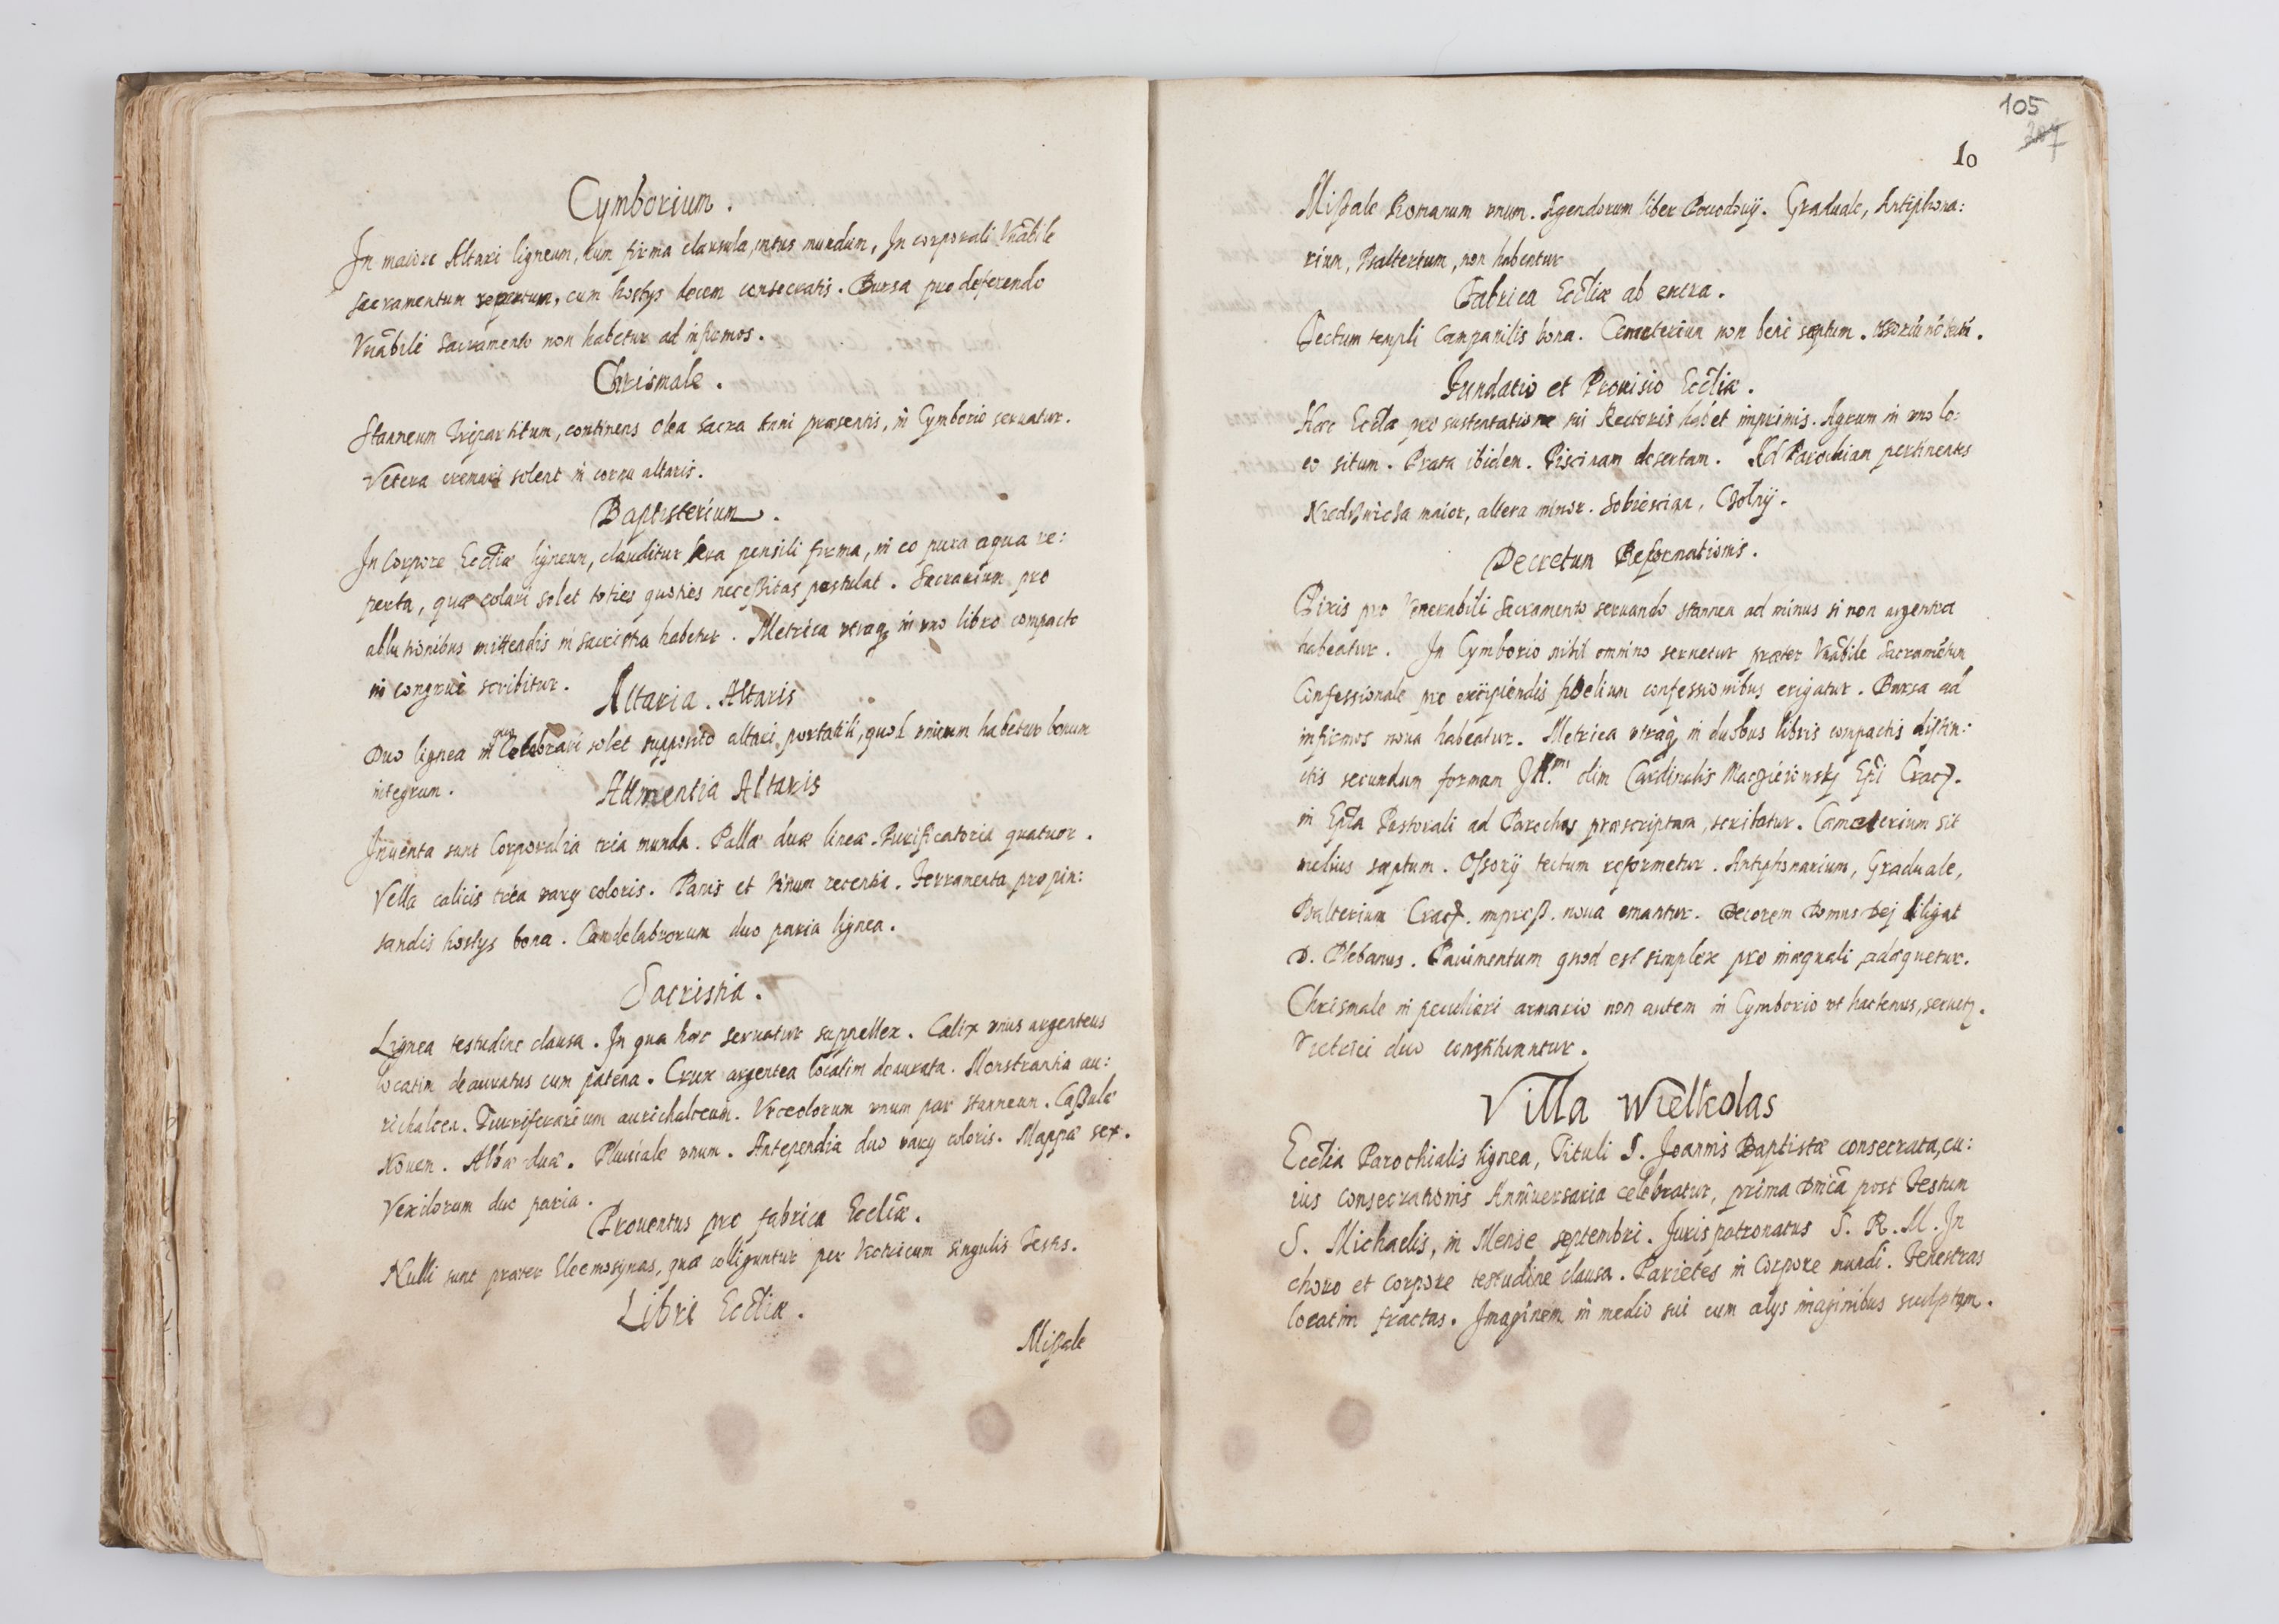 Cymborium.
In maiore Altari ligneum, cum firma clausula, intus mundum, In corporali Vnābile
sacramentum repertum, cum hostys decem consecratis. Bursa pro deferendo
Vnābili Sacramento non habetur ad infirmos.
Chrismale.
Stanneum Tripartitum, continens olea sacra anni præsentis, in Cymborio seruatur.
Vetera cremari solent in cornu altaris.
Baptisterium.
In Corpore Eccliæ ligneum, clauditur sera pensili firma, in eo pura aqua re:
perta, quæ colari solet toties quoties necessitas postulat. Sacrarium pro
ablutionibus mittendis in sacristia habetur. Metrica vtraq₃ in vno libro compacto
in congrue scribitur.
Altaria. Altaris
Duo lignea in quo Celebrari solet supposito altari portatili, quod vnicum habetur bonum
integrum.
Altaris
Inuenta sunt Corporalia tria munda. Pallæ duæ lineæ. Purificatoria quatuor.
Vella calicis tria vary coloris. Panis et vinum recentia. Ferramenta pro pin:
sandis hostys bona. Candelabrorum duo paria lignea.
Sacristia.
Lignea testudine clausa. In qua hæc seruatur suppellex. Calix vnus argenteus
localim deauratus cum patena. Crux argentea localim deaurata. Monstrantia au:
richalcea. Turriferarium aurichalceum. Vrceolorum vnum par stanneum. Casulæ
Nouem. Albæ duæ. Pluuiale vnum. Antependia duo vary coloris. Mappæ sex.
Vexilorum duo paria.
Prouentus pro fabrica Eccliæ.
Nulli sunt præter Eleemosynas, quæ colliguntur per Victricum singulis Festis.
Libri Eccliæ.
Missale
105
10
Missale Romanum vnum. Agendorum liber Powodowÿ. Graduale, Antiphona:
rium, Psalterium, non habentur
Fabrica Eccliæ ab extra.
Tectum templi Campanilis bona. Cemeterium non bene septum.
Fundatio et Prouisio Eccliæ.
Hæc Ecclia pro sustentatione sui Rectoris habet imprimis. Agrum in vno lo:
co situm. Prata ibidem. Piscinam desertam. Ad Parochiam pertinentes
maior, altera minor.
Decretum Reformationis.
Pixis pro Venerabili Sacramento seruando stannea ad minus si non argentea
habeatur. In Cymborio nihil omnino seruetur præter Vnābile Sacramētum
Confessionale pro excipiendis fidelium confessionibus erigatur. Bursa ad
infirmos noua habeatur. Metrica vtraq₃ in duobus libris compactis distin:
ctis secundum formam Ill.mi olim Cardinalis Macieiowsky Epi Crac.
in Epla Pastorali ad Parochos præscriptam, scribatur. Cæmeterium sit
melius sæptum. Ossorÿ tectum reformetur. Antiphonarium, Graduale,
Psalterium Crac. impress. noua emantur. Decorem Domus Dej diligat
D. Plebanus. Pauimentum quod est simplex pro inæquali adæquetur.
Chrismale in peculiari armario non autem in Cymborio vt hactenus, seruet₃.
Victrici duo constituantur.
Villa Wielkolas
Ecclia Parochialis lignea, Tituli S. Joannis Baptistæ consecrata, cu:
ius consecrationis Anniuersaria celebratur, prima Dnica post Festum
S. Michaelis, in Mense septembri. Juris patronatus S. R. M. In
choro et Corpore testudine clausa. Parietes in Corpore nundi. Fenestras
localim fractas. Imaginem in medio sui cum alys imaginibus sculptam.